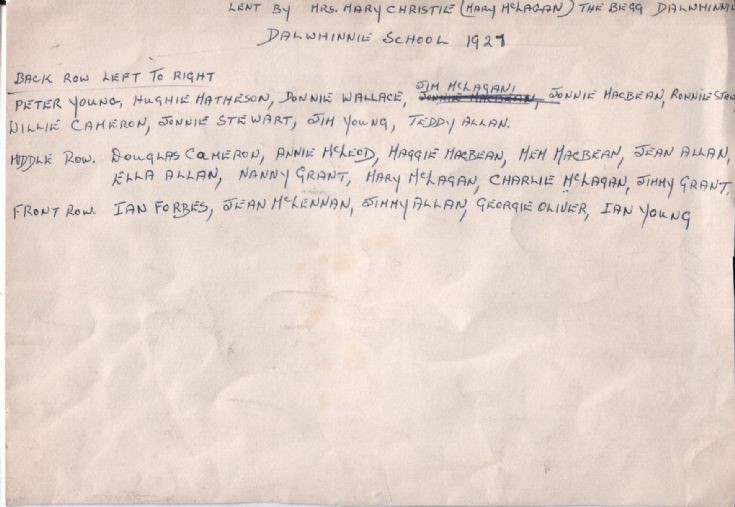 LENT BY MRS. MARY CHRISTIE (MARY McLAGAN) THE BEGG DALWHINNIE
DALWHINNIE SCHOOL 1927
BACK ROW LEFT TO RIGHT
JIM McLAGAN
PETER YOUNG, HUGHIE MATHESON, DONNIE WALLACE, JONNIE MACBEAN, JONNIE MACBEAN, RONNIE STEW
WILLIE CAMERON, JONNIE STEWART, JIM YOUNG, TEDDY ALLAN.
MIDDLE ROW. DOUGLAS CAMERON, ANNIE McLEOD, MAGGIE MACBEAN, MEM MACBEAN, JEAN ALLAN,
ELLA ALLAN, NANNY GRANT, MARY McLAGAN, CHARLIE McLAGAN, JIMMY GRANT,
FRONT ROW. IAN FORBES, JEAN McLENNAN, JIMMY ALLAN, GEORGIE OLIVER, IAN YOUNG